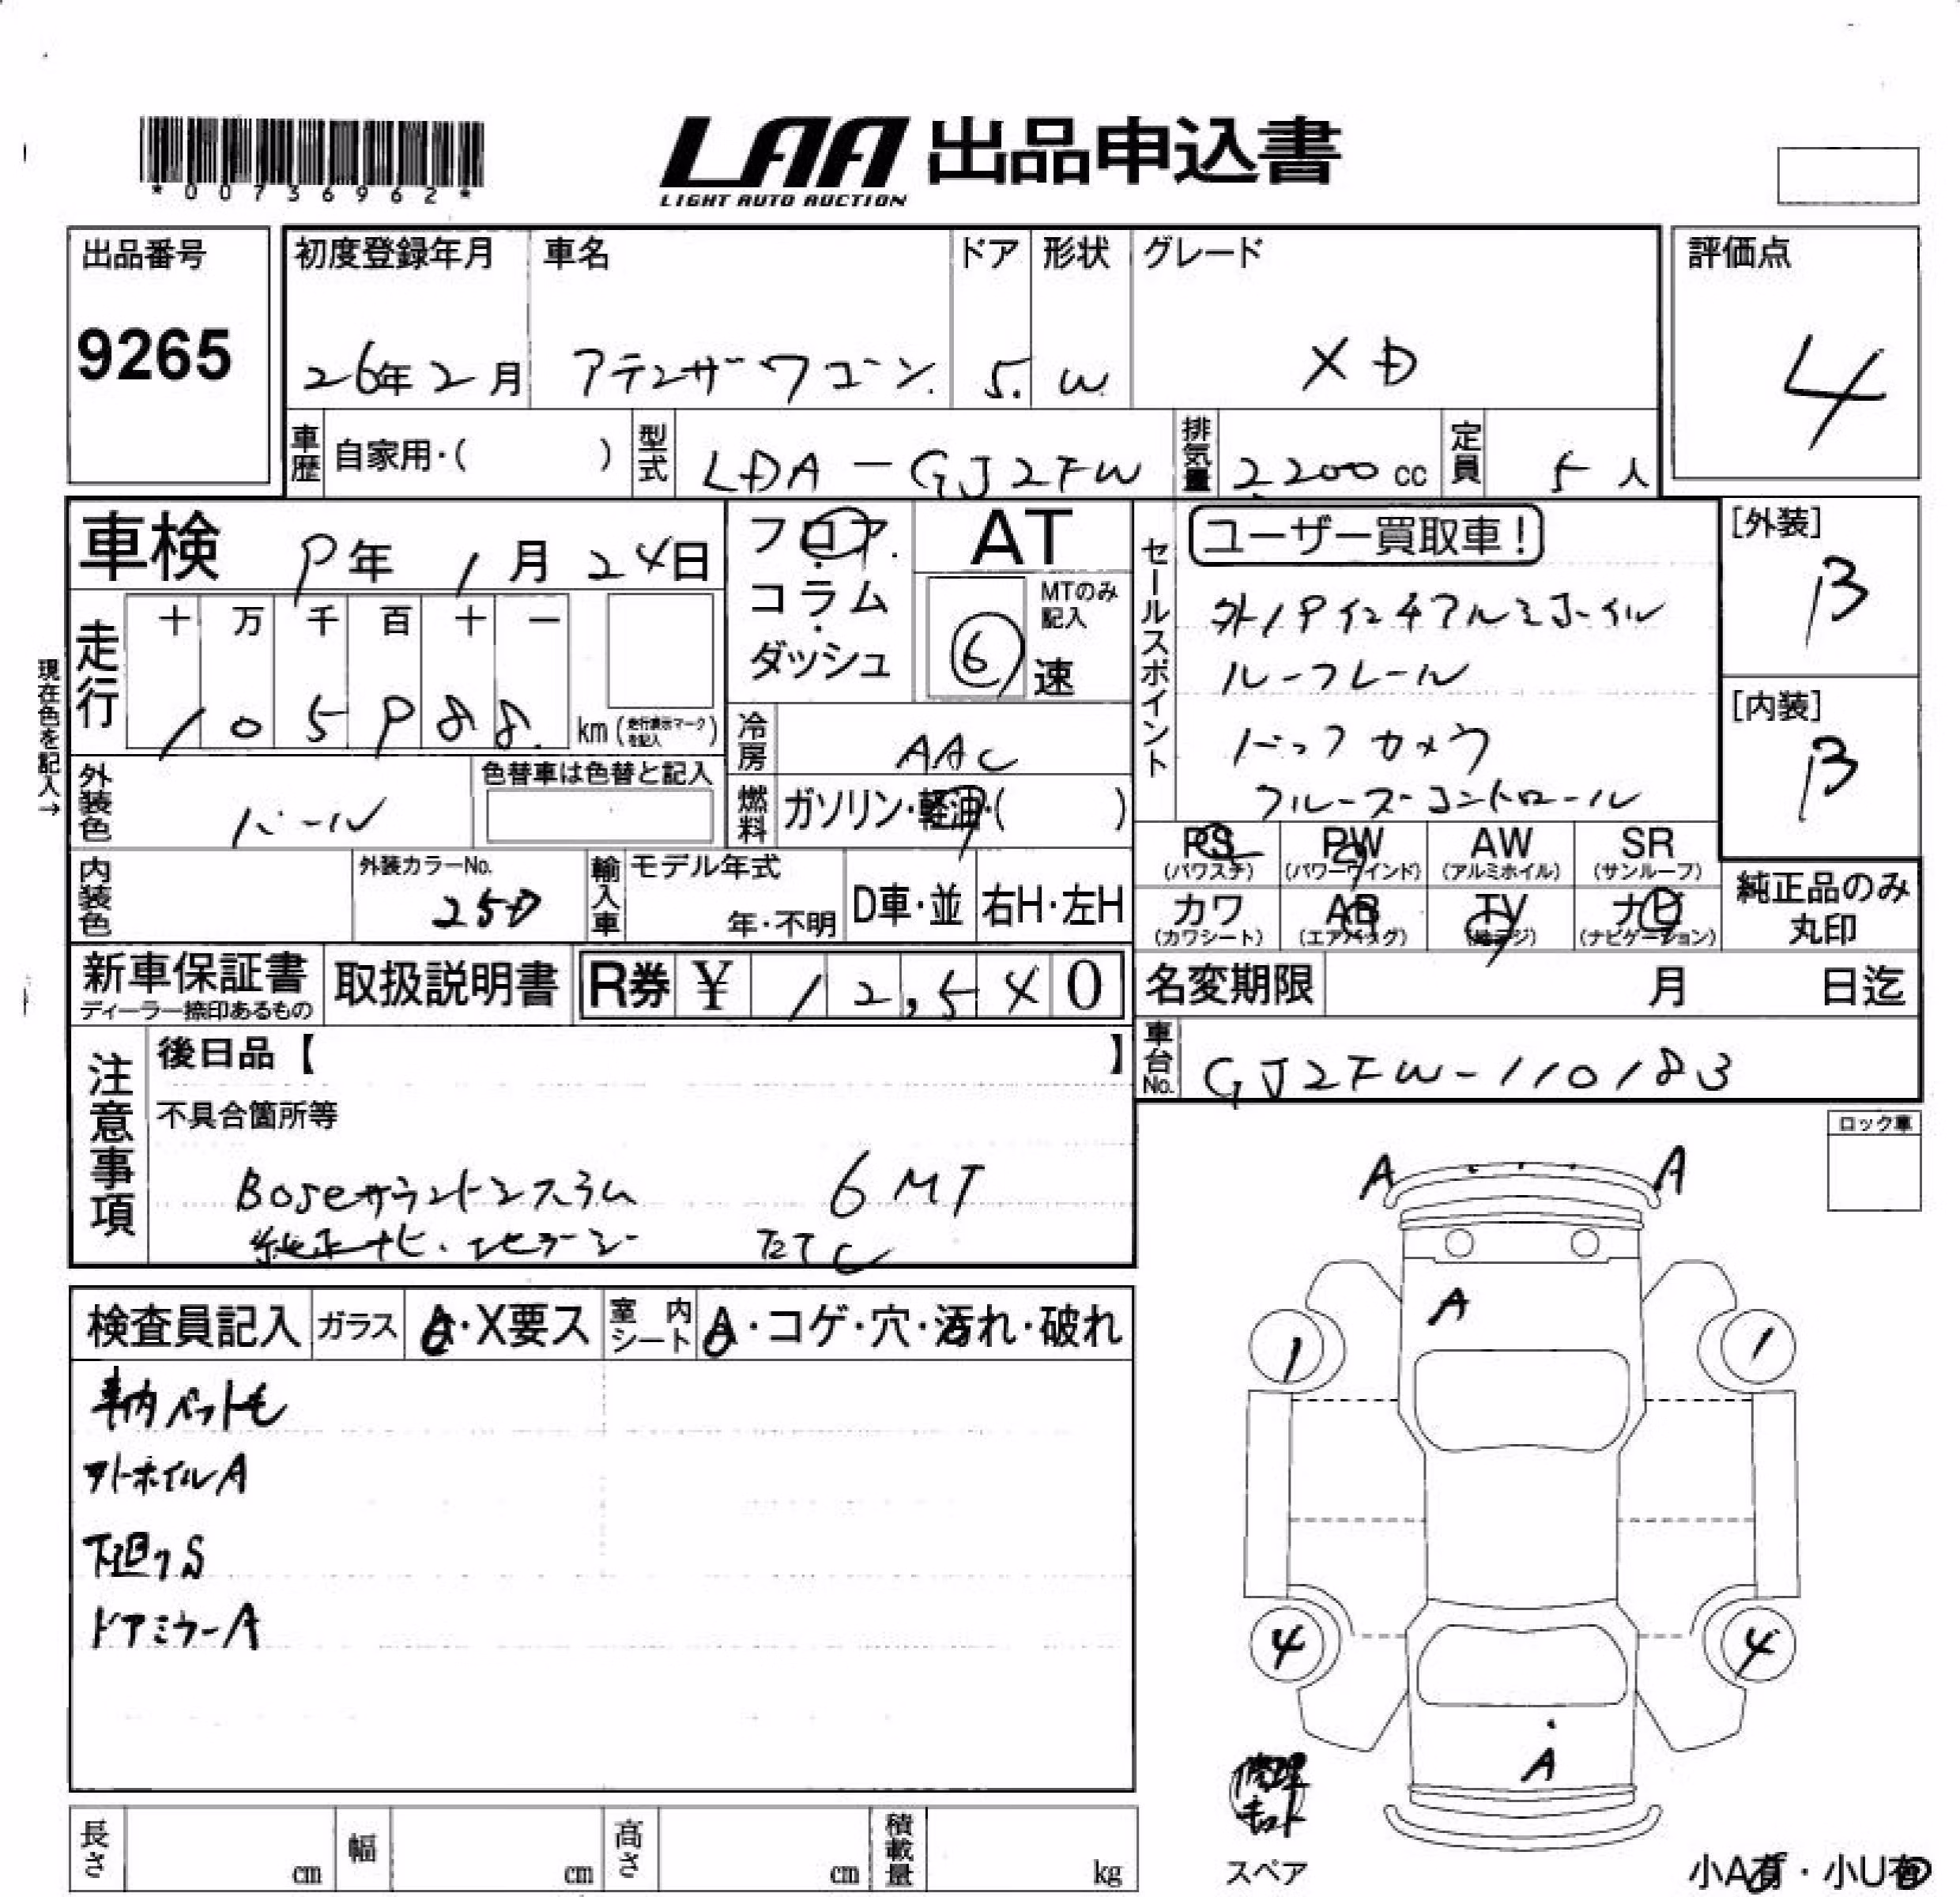 *00736962*
LAA 出品申込書
LIGHT AUTO AUCTION
出品番号
9265
初度登録年月
26年2月
車名
アテンザワゴン
ドア
5.
形状
W
グレード
XD
評価点
4
車歴 自家用・( )
型式 LDA-GJ2FW
排気量 2,200 cc
定員 5人
車検 9年1月24日
現在色を記入→
走行
十 万 千 百 十 一
1 0 5 9 8 8. km (走行表示マークを記入)
フロア・
コラム・
ダッシュ
AT
MTのみ記入
6 速
冷房 AAC
燃料 ガソリン・軽油・( )
外装色 パール
色替車は色替と記入
内装色
外装カラーNo.
25D
輸入車 モデル年式
年・不明
D車・並
右H・左H
セールスポイント
ユーザー買取車!
外19インチアルミホイル
ルーフレール
バックカメラ
クルーズコントロール
[外装]
B
[内装]
B
PS (パワステ)
PW (パワーウインド)
AW (アルミホイル)
SR (サンルーフ)
カワ (カワシート)
AB (エアバッグ)
TV (地デジ)
ナビ (ナビゲーション)
純正品のみ
丸印
新車保証書
ディーラー捺印あるもの
取扱説明書
R券 ¥ 12,540
名変期限 月 日迄
車台No. GJ2FW-110183
注意事項
後日品【 】
不具合箇所等
Boseサウンドシステム 6MT
純正ナビ・地デジ ETC
ロック車
検査員記入
ガラス A・X要ス
室内シート A・コゲ・穴・汚れ・破れ
車内ペット毛
外ホイルA
下廻りS
ドアミラーA
A A
A
1 1
4 4
A
修理
キット
スペア
長さ cm
幅 cm
高さ cm
積載量 kg
小A有・小U有